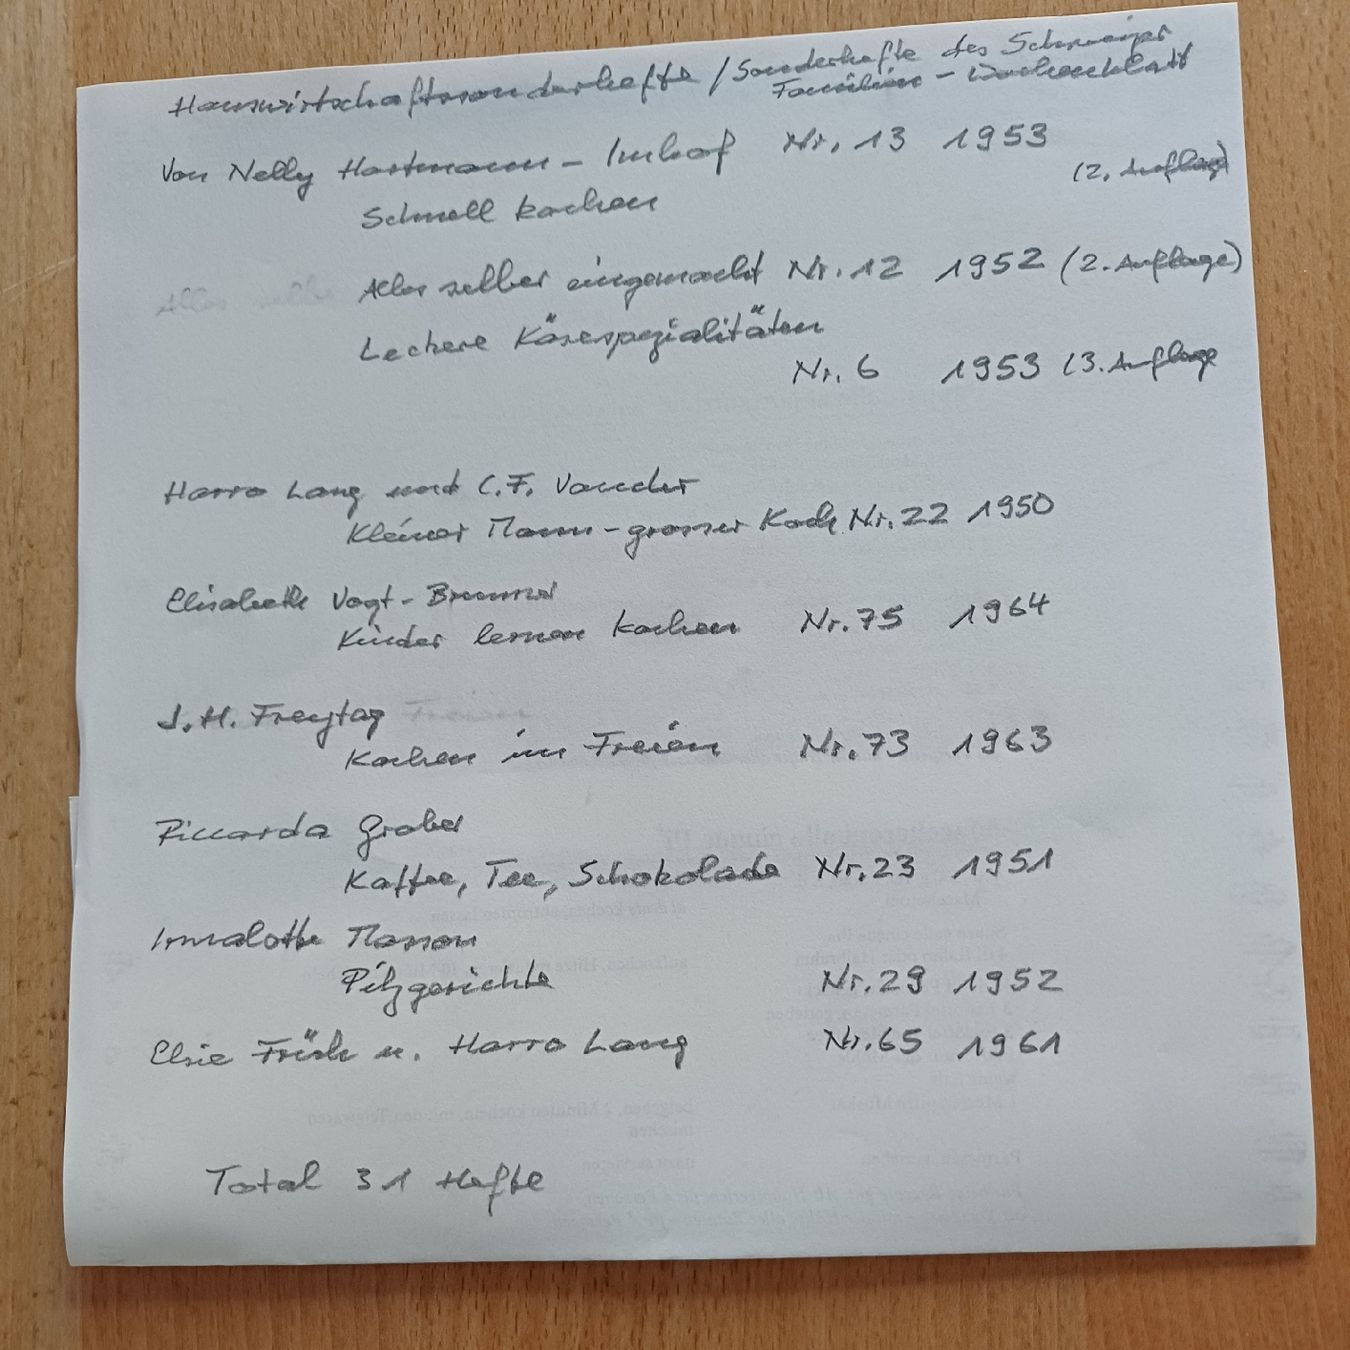 Hauswirtschaftssonderhefte / Sonderhefte des Schweizer
Familien - Wochenblatt
Von Nelly Hartmann - Imhof Nr. 13 1953
(2. Auflage)
Schnell kochen
Alles selber eingemacht Nr. 12 1952 (2. Auflage)
Leckere Käsespezialitäten
Nr. 6 1953 (3. Auflage
Harro Lang und C.F. Vaucher
Kleiner Mann - grosser Koch Nr. 22 1950
Elisabeth Vogt - Brunner
Kinder lernen kochen Nr. 75 1964
J.H. Freytag
Kochen im Freien Nr. 73 1963
Riccarda Graber
Kaffee, Tee, Schokolade Nr. 23 1951
Irmalotte Masson
Pilzgerichte Nr. 29 1952
Elsie Früh u. Harro Lang Nr. 65 1961
Total 31 Hefte